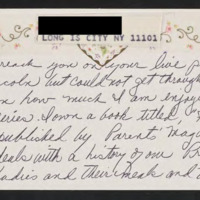 LONG IS CITY NY 11101
reach you on your live p
coln but could not get through
n how much I am enjoyi
eries. I own a book titled "
published by Parents' Maga
deals with a history of our Fi
ladies and their meals and